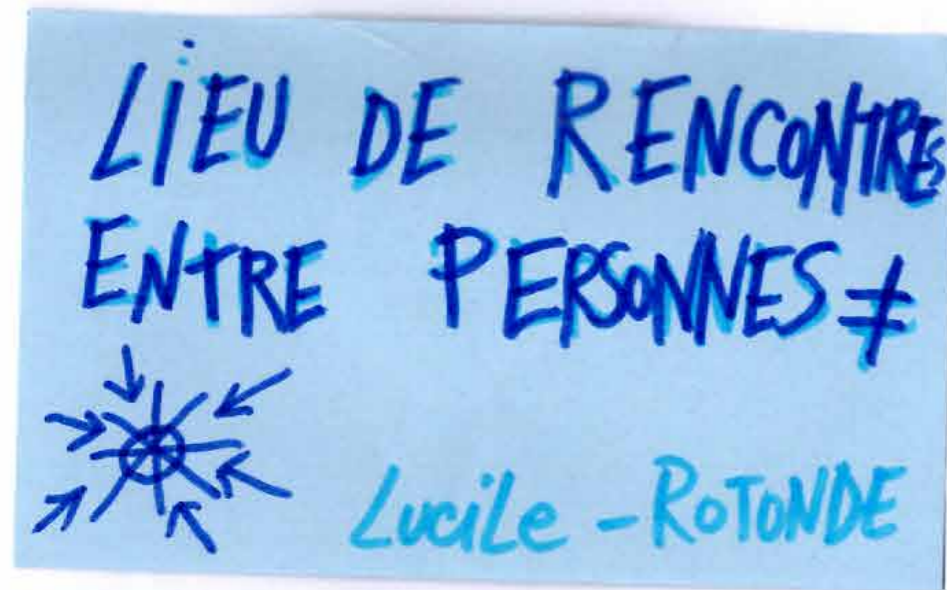 LIEU DE RENCONTRES
ENTRE PERSONNES ≠
Lucile - ROTONDE